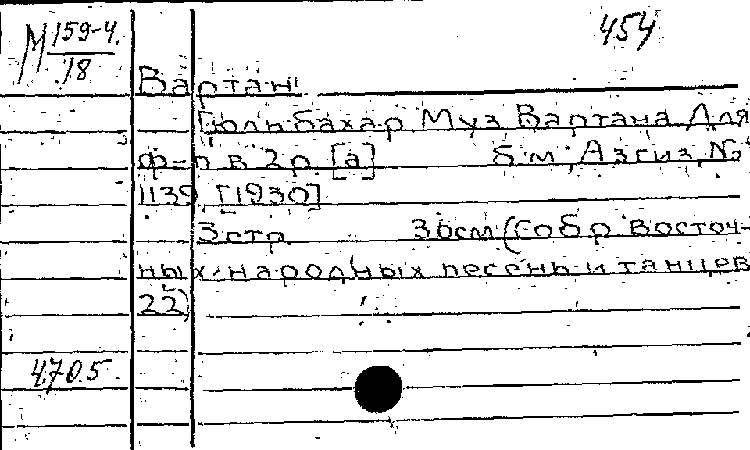 М 159-4. 454
18
Вартан
Гюльбахар Муз Вартана Для
ф-п в 2 р. [а] б.м., Азгиз, №
1139 [1930]
3 стр. 36см (Собр Восточ-
ных народных песень и танцев
22)
4705